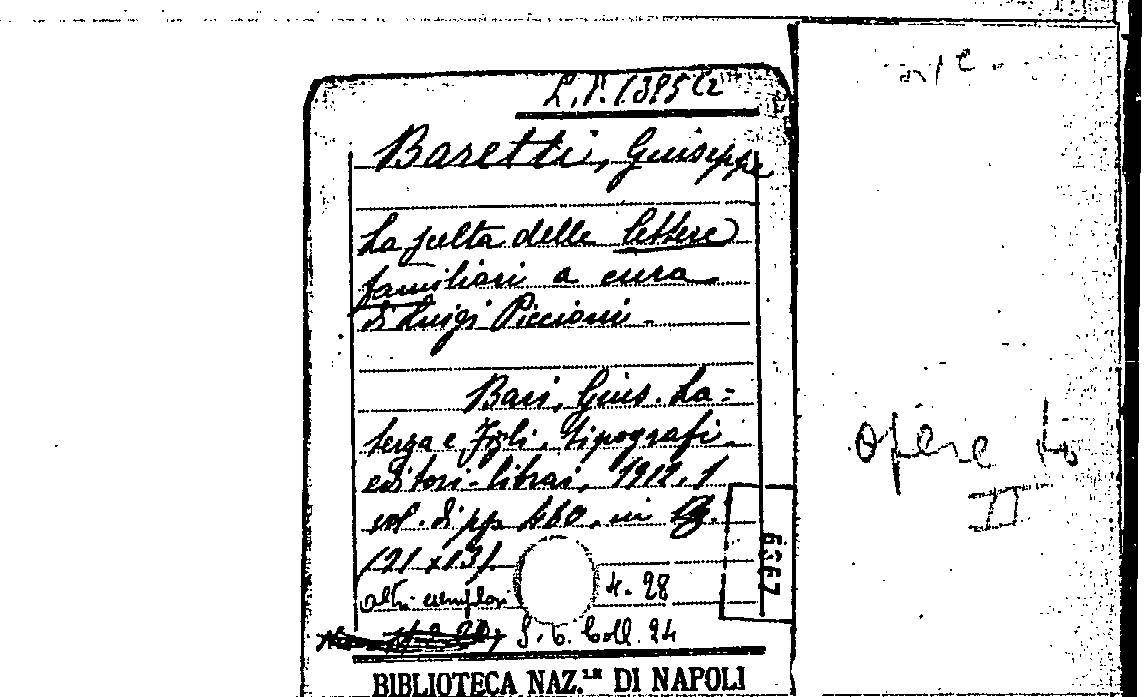 L.P. 1385 (2
Baretti, Giuseppe
La scelta delle lettere
familiari a cura
di Luigi Piccioni.
Bari, Gius. La=
terza e Figli, tipografi-
editori-librai, 1912, 1
vol. di pp. 460, in
(21 x 13)
altri esemplari 4. 28
S. C. Coll. 24
6367
BIBLIOTECA NAZ.LE DI NAPOLI
opere
II